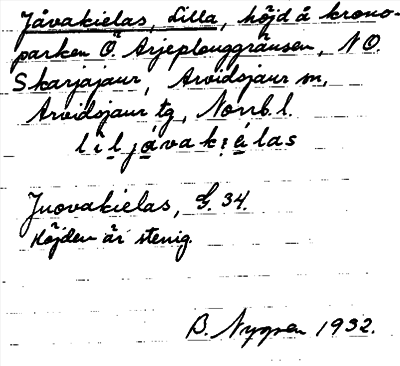 Jåvakielas, Lilla, höjd å krono-
parken Ö. Arjeplouggränsen, NO.
Skarjajaur, Arvidsjaur sn,
Arvidsjaur tg, Norrb. l.
l i l j å v a k i e l a s
Juovakielas, G. 34.
Höjden är stenig.
B. Nygren 1932.